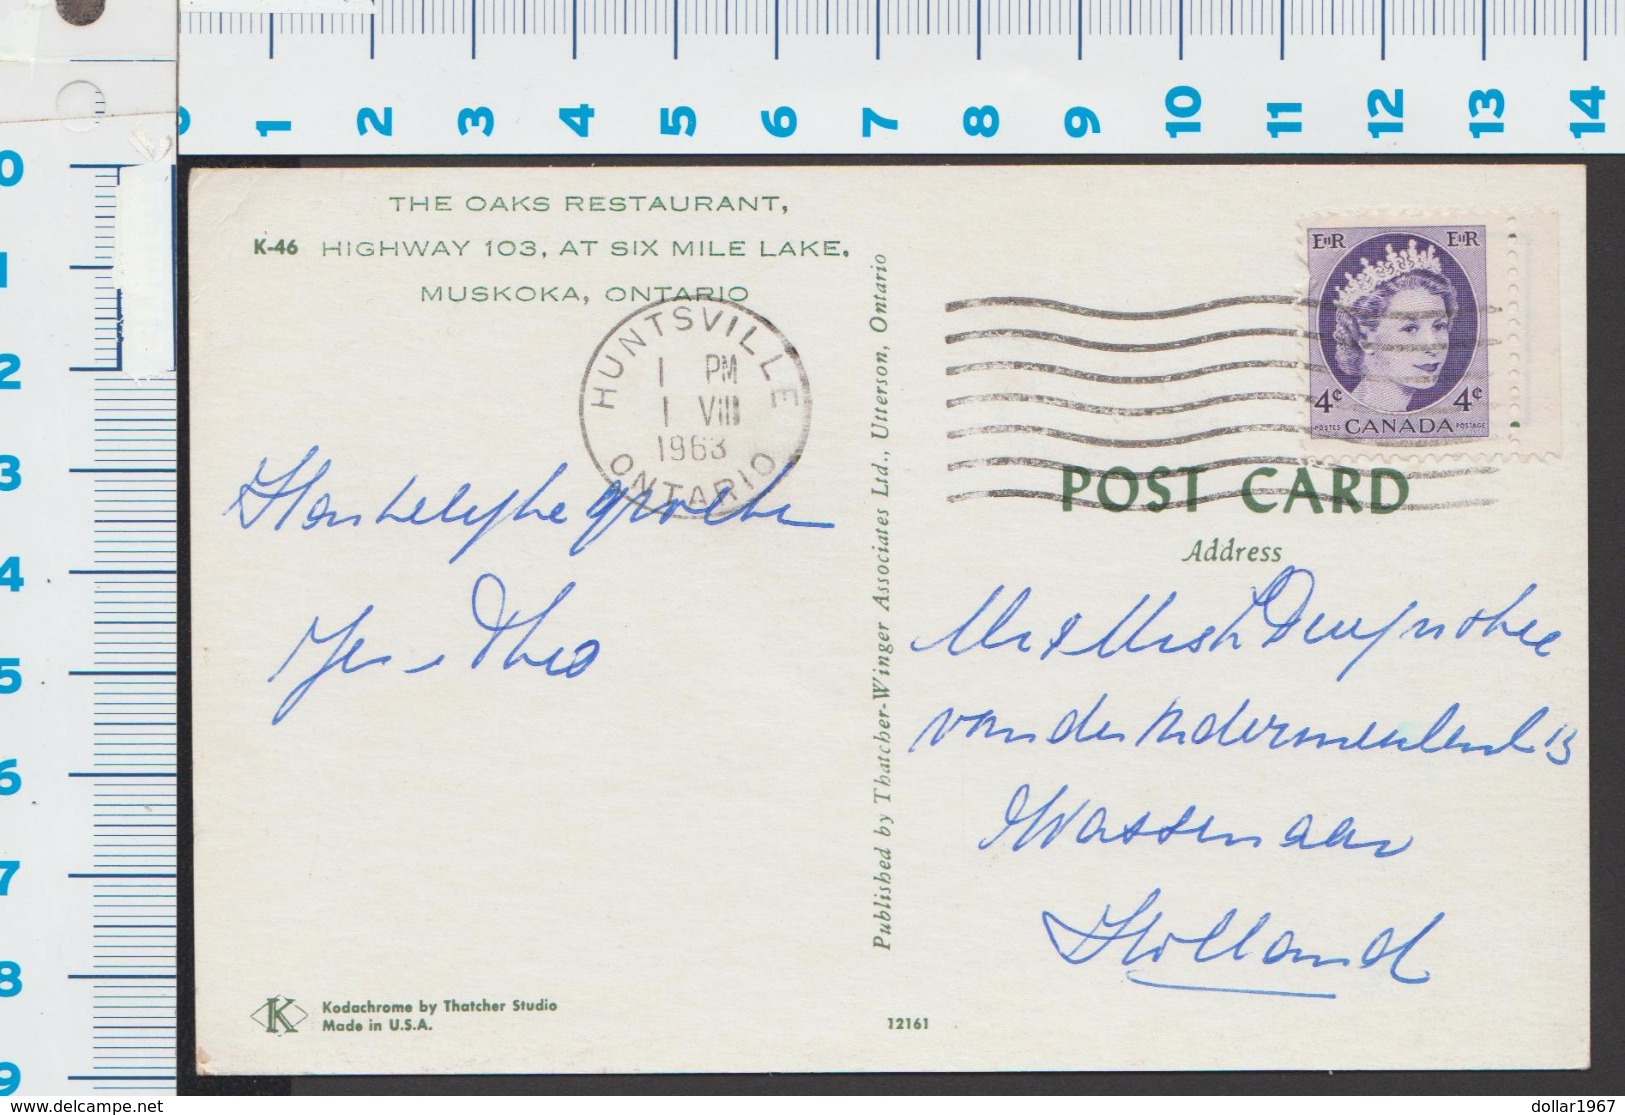 0 1 2 3 4 5 6 7 8 9 10 11 12 13 14
0
1
2
3
4
5
6
7
8
9
THE OAKS RESTAURANT,
K-46 HIGHWAY 103, AT SIX MILE LAKE,
MUSKOKA, ONTARIO
HUNTSVILLE
1 PM
1 VIII
1963
ONTARIO
Hartelijke groeten
Theo
Kodachrome by Thatcher Studio
Made in U.S.A.
K
Published by Thatcher-Winger Associates Ltd., Utterson, Ontario
12161
EIIR EIIR
4¢ 4¢
POSTES CANADA POSTAGE
POST CARD
Address
Mr & Mrs
van der 13
Wassenaar
Holland
www.delcampe.net
dollar1967